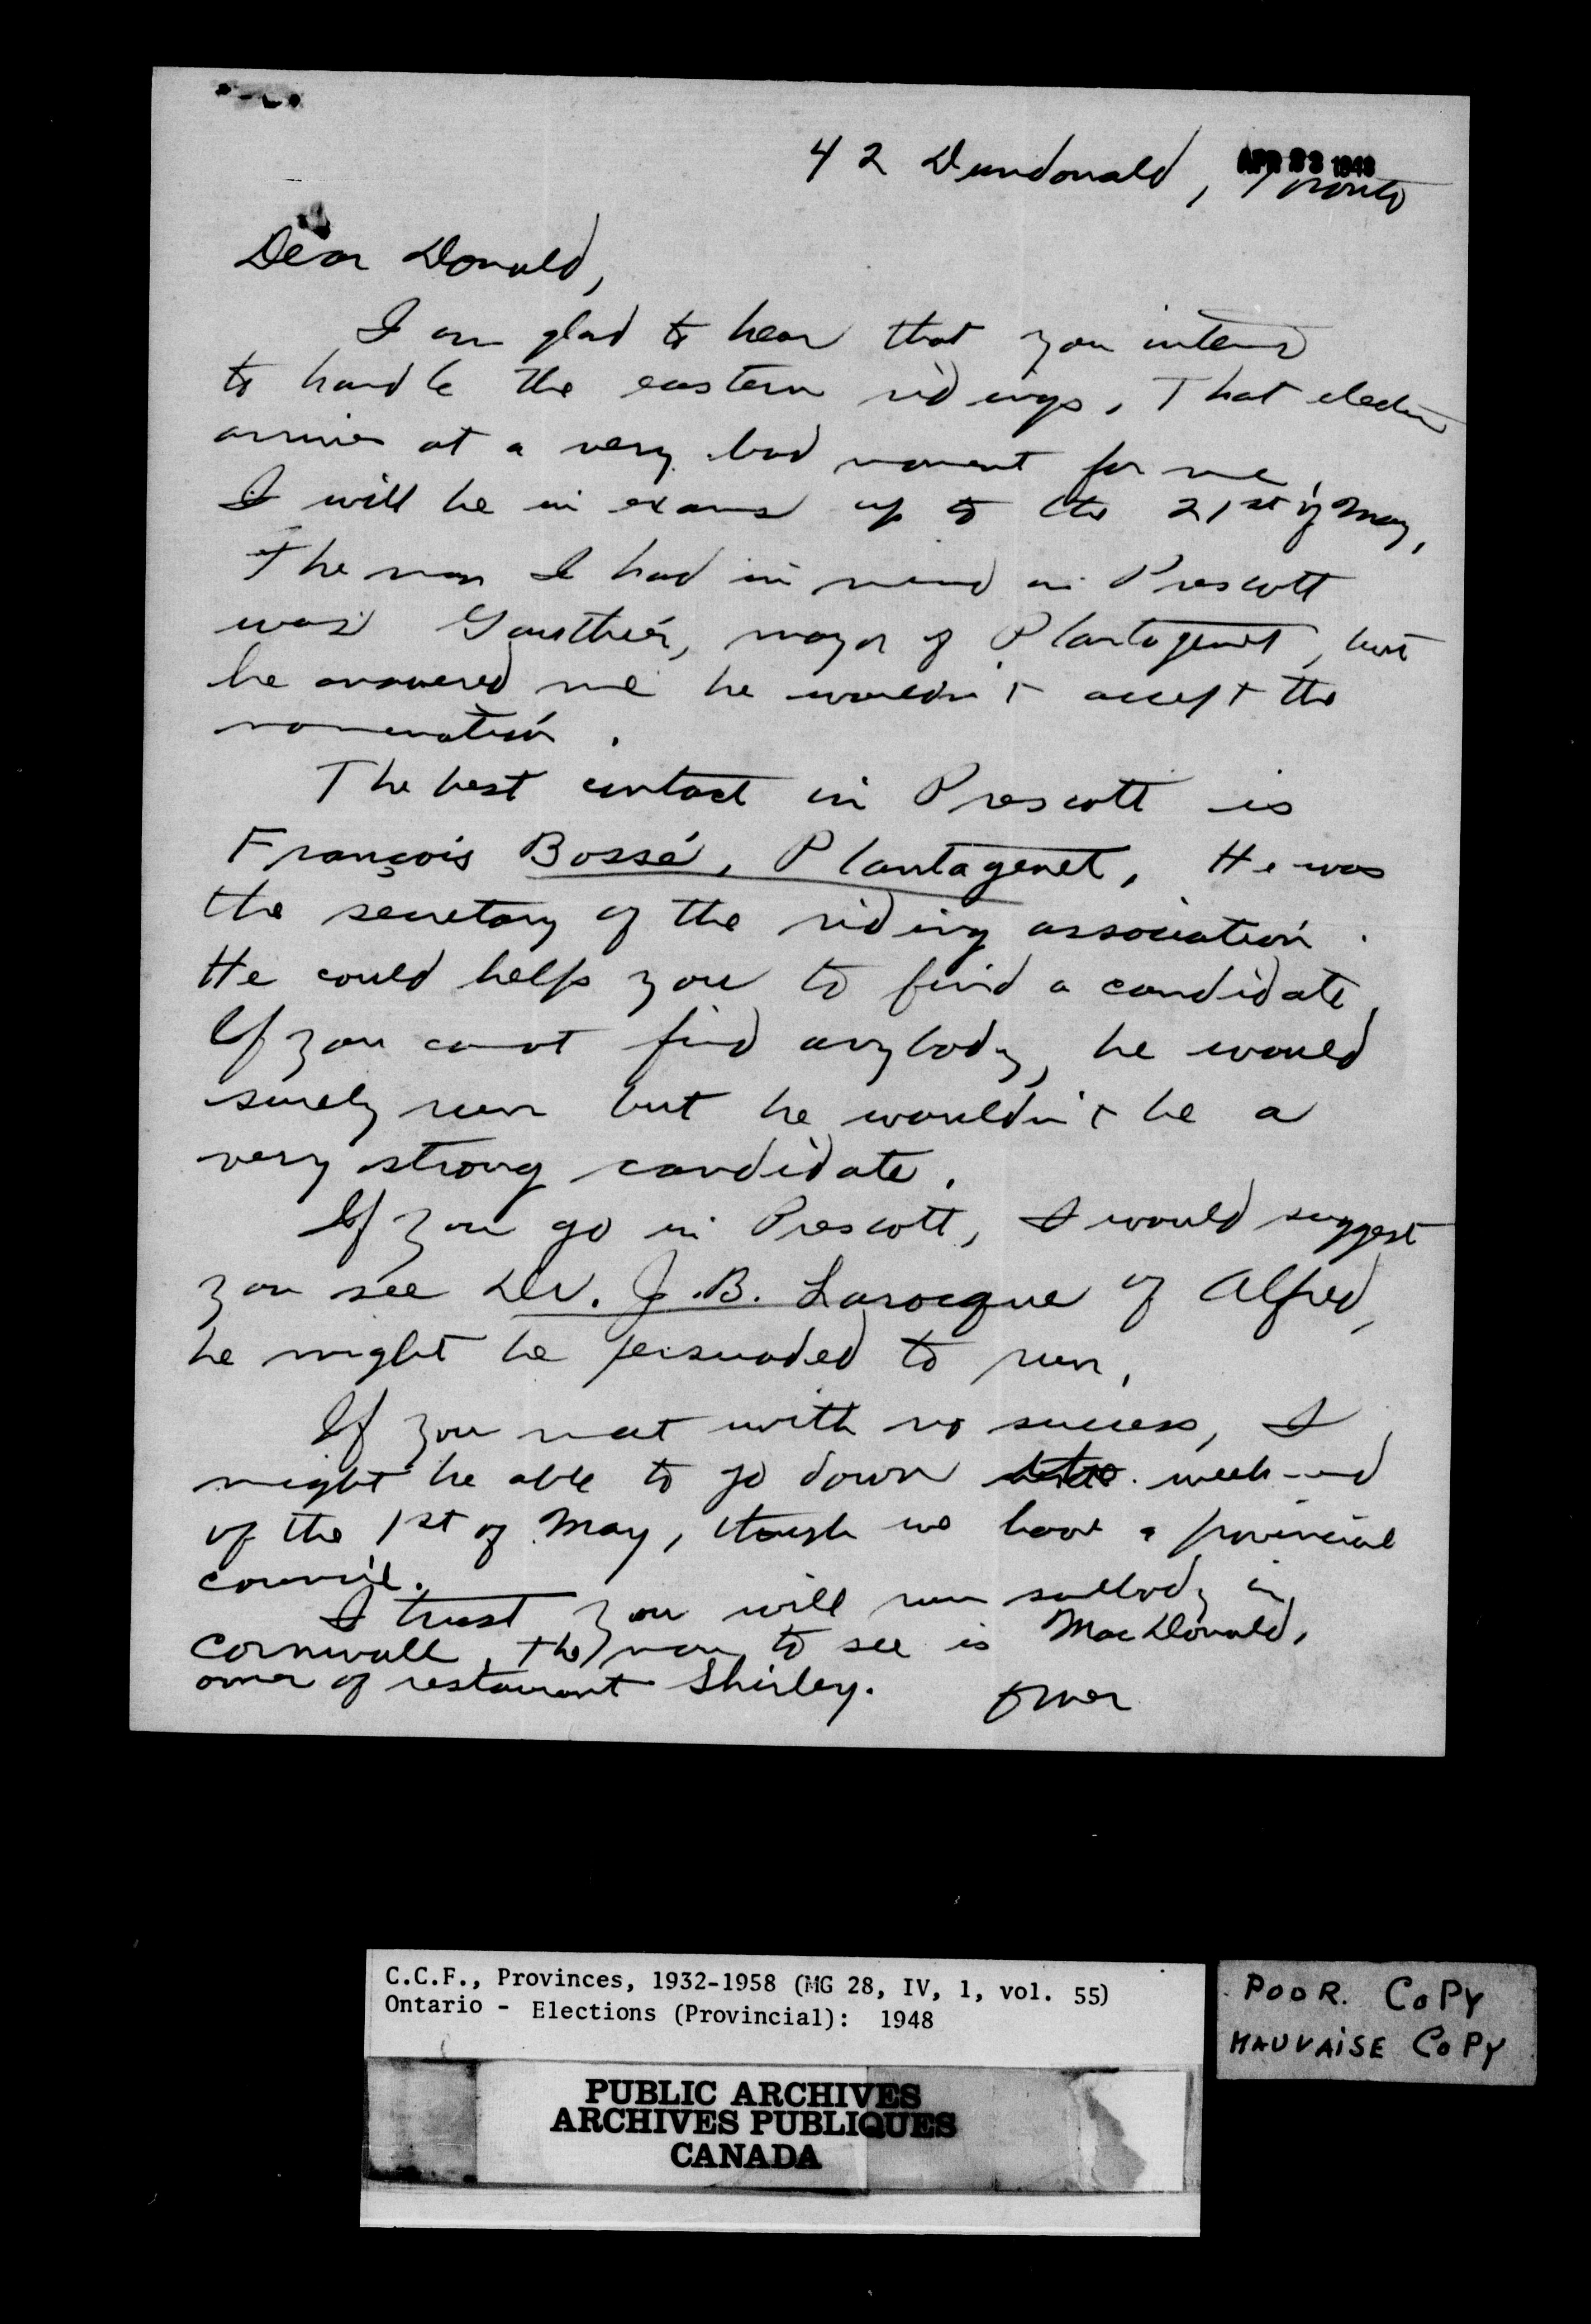 42 Dundonald, Toronto
APR 23 1948
Dear Donald,
I am glad to hear that you intend
to handle the eastern ridings. That election
arrives at a very bad moment for me,
I will be in exams up to the 21st of May.
The man I had in mind in Prescott
was Gauthier, mayor of Plantagenet, but
he answered me he wouldn't accept the
nomination.
The best contact in Prescott is
François Bossé, Plantagenet. He was
the secretary of the riding association.
He could help you to find a candidate.
If you cannot find anybody, he would
surely run but he wouldn't be a
very strong candidate.
If you go in Prescott, I would suggest
you see Dr. J.B. Larocque of Alfred,
he might be persuaded to run.
If you meet with no success, I
might be able to go down week-end
of the 1st of May, though we have a provincial
council.
I trust you will run in
Cornwall. The man to see is MacDonald,
owner of restaurant Shirley.
Omer
C.C.F., Provinces, 1932-1958 (MG 28, IV, 1, vol. 55)
Ontario - Elections (Provincial): 1948
POOR. COPY
MAUVAISE COPY
PUBLIC ARCHIVES
ARCHIVES PUBLIQUES
CANADA